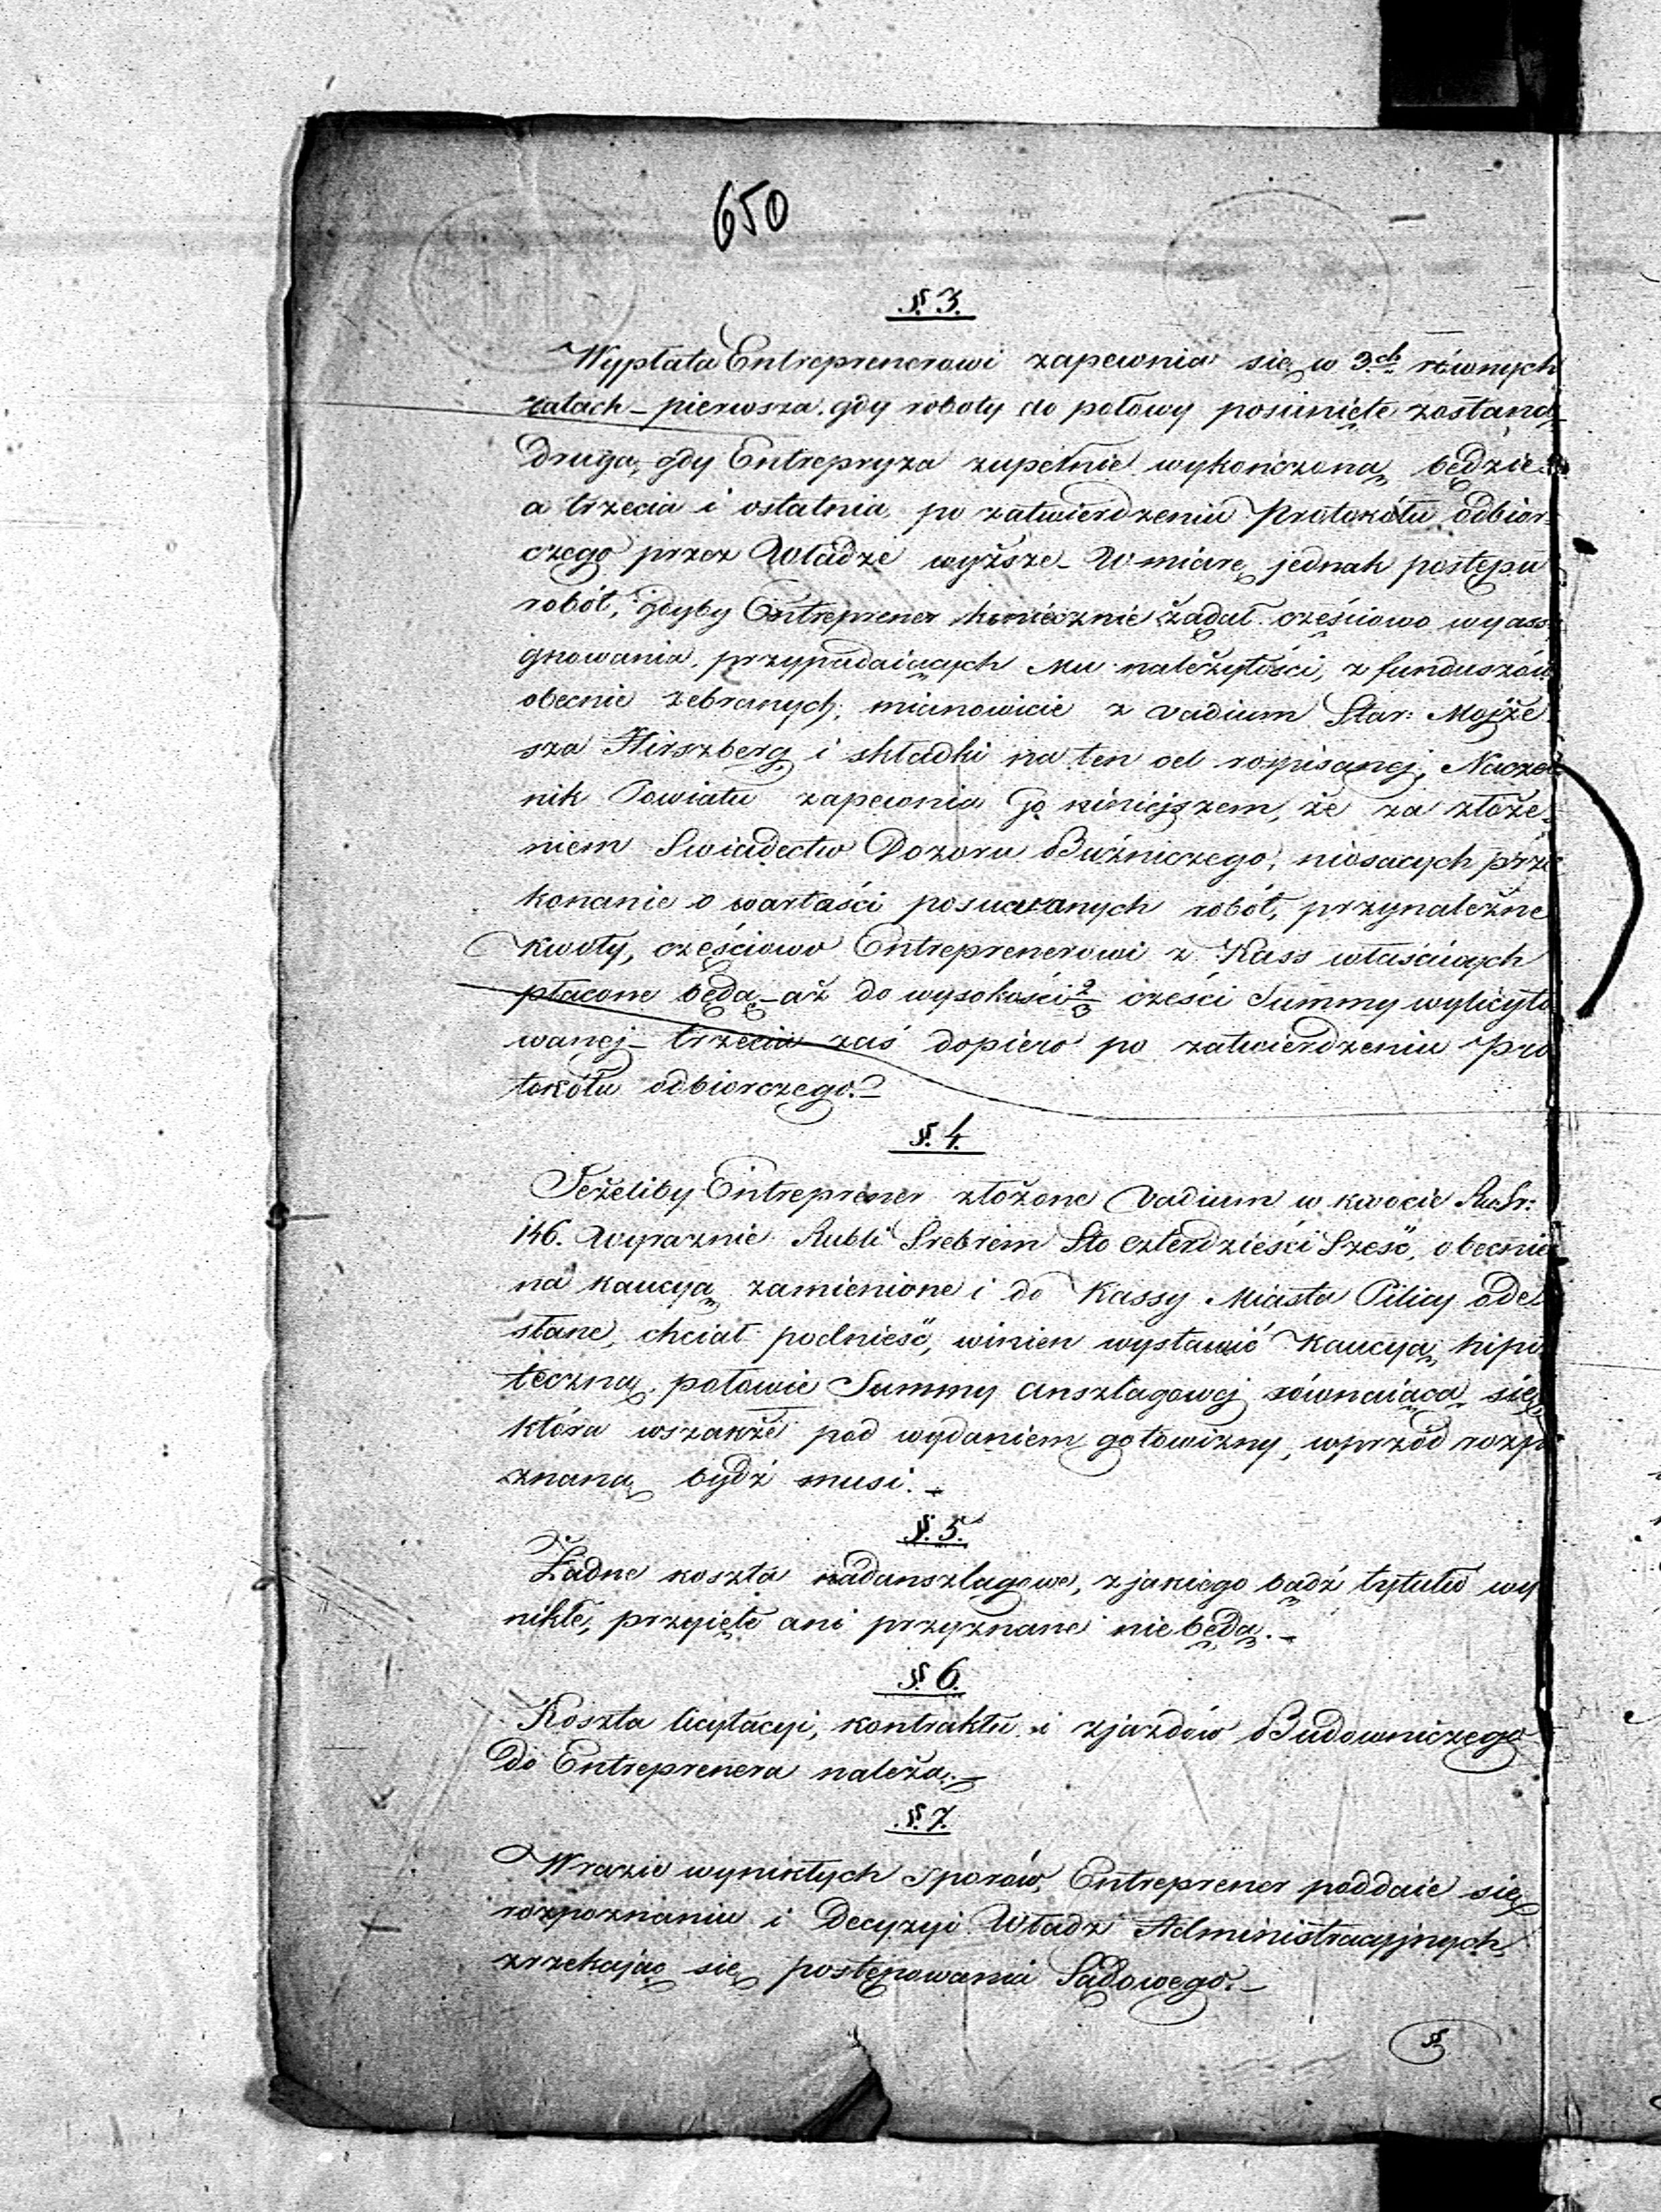 650
§. 3.
Wypłata Entreprenerowi zapewnia się w 3ch równych
ratach – pierwsza gdy roboty do połowy posunięte zostaną
druga, gdy Entrepryza zupełnie wykończoną będzie
a trzecia i ostatnia, po zatwierdzeniu Protokółu odbior-
czego przez Władze wyższe – W miarę jednak postępu
robót, gdyby Entreprener koniecznie żądał częściowo wyass
gnowania, przypadaiących Mu należytości, z funduszów
obecnie zebranych, mianowicie z vadium Star: Mojże
sza Hirszberg i składki na ten cel rozpisanej, Naczel
nik Powiatu zapewnia Go niniejszem, że za złoże-
niem Swiadectw Dozoru Bużniczego, niosących prze
konanie o wartości posuwanych robót, przynależne
kwoty, częściowo Entreprenerowi z Kass właściwych
płacone będą – aż do wysokości 2/3 części Summy wylicyto
wanej – trzecia zaś dopiero po zatwierdzeniu Pro
tokółu odbiorczego. –
§. 4.
Jeżeliby Entreprener złożone Vadium w kwocie Rs. Sr:
146. Wyraznie Rubli Srebrem Sto czterdzieści Sześć, obecnie
na kaucyą zamienione i do Kassy Miasta Pilicy ode
słane, chciał podnieść, winien wystawić Kaucyą hipo
teczną połowie Summy anszlagowej równaiącą się
która wszakże pod wydaniem gotowizny, wprzód rozpo
znaną bydź musi. –
§. 5.
Żadne koszta nadanszlagowe, z jakiego bądź tytułu wy
nikłe, przyięte ani przyznane nie będą. –
§. 6.
Koszta licytacyi, kontraktu i zjazdów Budowniczego
do Entreprenera należą. –
§. 7.
W razie wynikłych Sporów, Entreprener poddaie się
rozpoznaniu i Decyzyi Władz Administracyjnych,
zrzekając się postępowania Sądowego. –
§